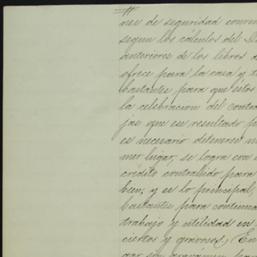 nes de seguridad conven
segun los cálculos del D
anteriores de los libros d
ofrece para la casa y t
bastantes para que estos
la celebracion del contra
jas que en resultado p
es necesario detenerse
mer lugar, se logra con
crédito contraido para
bien; y es lo principal,
bastantes para continua
trabajo y utilidad en
ciertos y gravosos. En